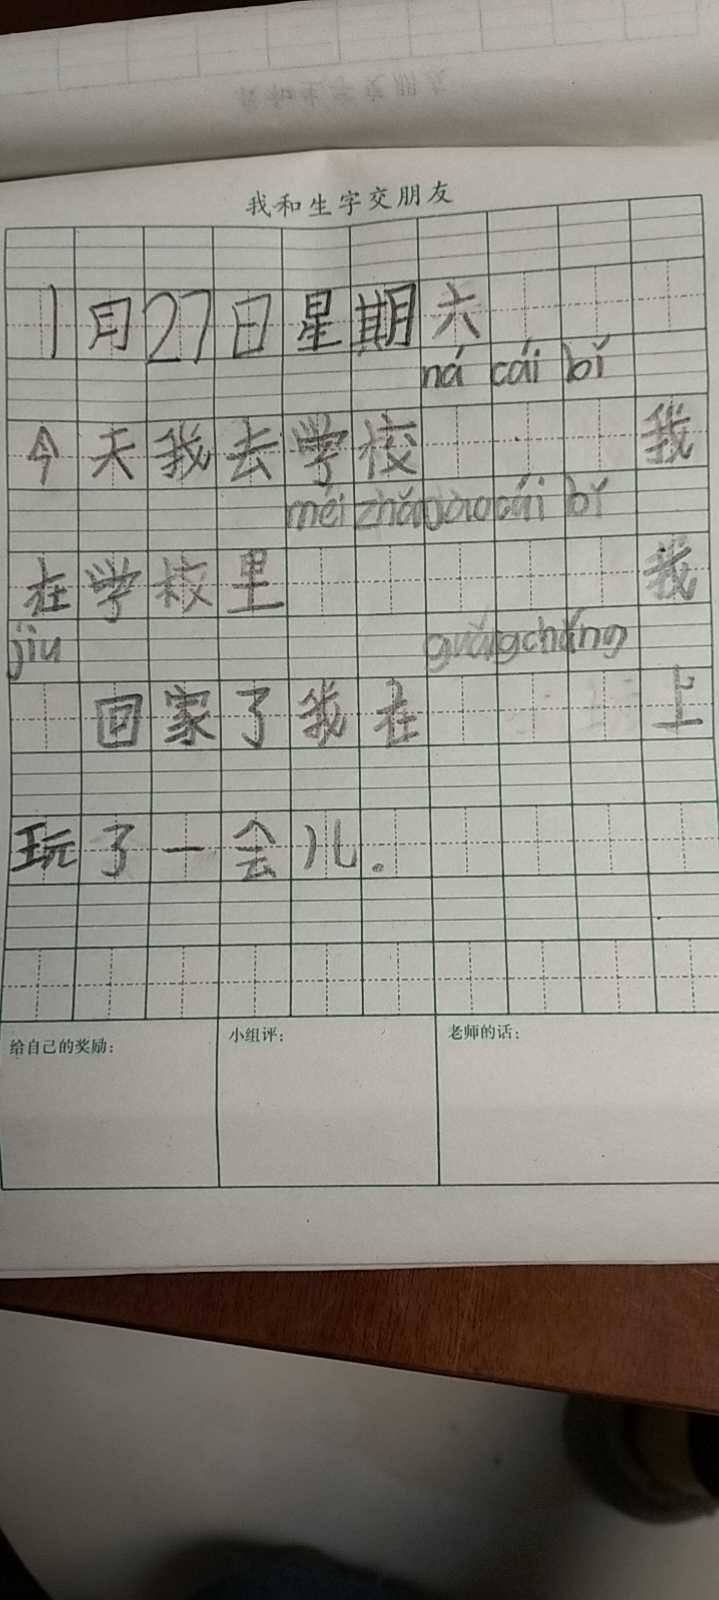 我和生字交朋友
1月27日星期六
ná cái bǐ
今天我去学校 我
méi zhǎo cái bǐ
在学校里 我
jiu guǎng chǎng
回家了我在 上
玩了一会儿。
给自己的奖励: 小组评: 老师的话: